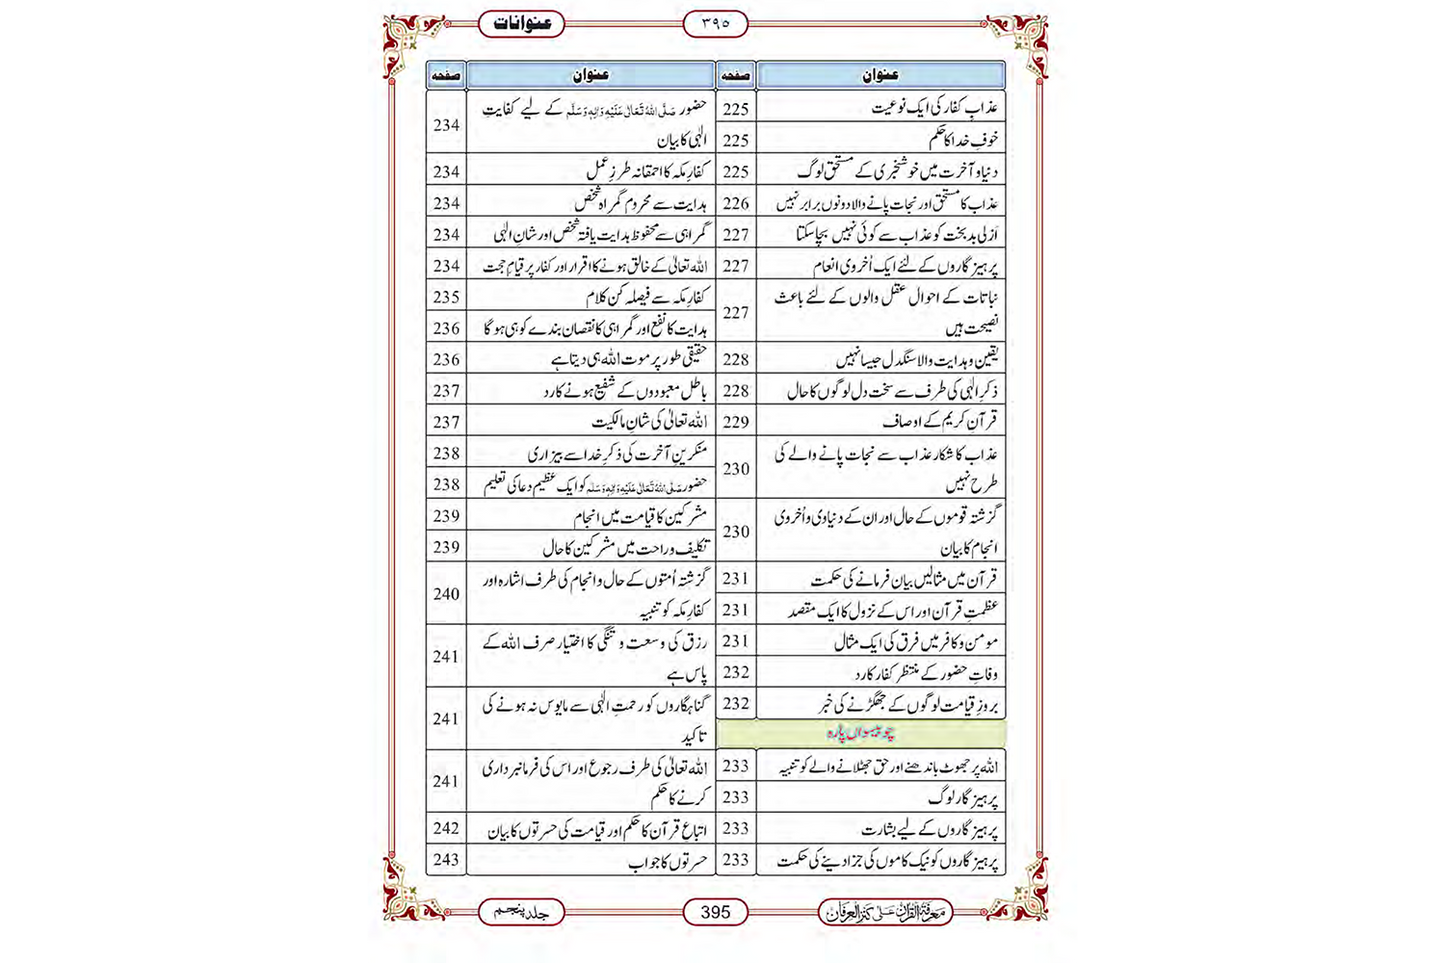 عنوانات
۳۹۵
عنوان صفحہ
عذابِ کفار کی ایک نوعیت 225
خوفِ خدا کا حکم 225
دنیا و آخرت میں خوشخبری کے مستحق لوگ 225
عذاب کا مستحق اور نجات پانے والا دونوں برابر نہیں 226
اَزلی بدبخت کو عذاب سے کوئی نہیں بچا سکتا 227
پرہیز گاروں کے لئے ایک اُخروی انعام 227
نباتات کے احوال عقل والوں کے لئے باعث
نصیحت ہیں 227
یقین و ہدایت والا سنگدل جیسا نہیں 228
ذکرِ الٰہی کی طرف سے سخت دل لوگوں کا حال 228
قرآنِ کریم کے اوصاف 229
عذاب کا شکار عذاب سے نجات پانے والے کی
طرح نہیں 230
گزشتہ قوموں کے حال اور ان کے دنیاوی و اُخروی
انجام کا بیان 230
قرآن میں مثالیں بیان فرمانے کی حکمت 231
عظمتِ قرآن اور اس کے نزول کا ایک مقصد 231
مومن و کافر میں فرق کی ایک مثال 231
وفاتِ حضور کے منتظر کفار کا رد 232
بروزِ قیامت لوگوں کے جھگڑنے کی خبر 232
چوبیسواں پارہ
اللہ پر جھوٹ باندھنے اور حق جھٹلانے والے کو تنبیہ 233
پرہیز گار لوگ 233
پرہیز گاروں کے لیے بشارت 233
پرہیز گاروں کو نیک کاموں کی جزا دینے کی حکمت 233
عنوان صفحہ
حضور صَلَّی اللہُ تَعَالٰی عَلَیْہِ وَاٰلِہٖ وَسَلَّم کے لیے کفایتِ
الٰہی کا بیان 234
کفارِ مکہ کا احمقانہ طرزِ عمل 234
ہدایت سے محروم گمراہ شخص 234
گمراہی سے محفوظ ہدایت یافتہ شخص اور شانِ الٰہی 234
اللہ تعالیٰ کے خالق ہونے کا اقرار اور کفار پر قیامِ حجت 234
کفارِ مکہ سے فیصلہ کن کلام 235
ہدایت کا نفع اور گمراہی کا نقصان بندے کو ہی ہو گا 236
حقیقی طور پر موت اللہ ہی دیتا ہے 236
باطل معبودوں کے شفیع ہونے کا رد 237
اللہ تعالیٰ کی شانِ مالکیت 237
منکرینِ آخرت کی ذکرِ خدا سے بیزاری 238
حضور صَلَّی اللہُ تَعَالٰی عَلَیْہِ وَاٰلِہٖ وَسَلَّم کو ایک عظیم دعا کی تعلیم 238
مشرکین کا قیامت میں انجام 239
تکلیف و راحت میں مشرکین کا حال 239
گزشتہ اُمتوں کے حال و انجام کی طرف اشارہ اور
کفارِ مکہ کو تنبیہ 240
رزق کی وسعت و تنگی کا اختیار صرف اللہ کے
پاس ہے 241
گناہگاروں کو رحمتِ الٰہی سے مایوس نہ ہونے کی
تاکید 241
اللہ تعالیٰ کی طرف رجوع اور اس کی فرمانبرداری
کرنے کا حکم 241
اتباعِ قرآن کا حکم اور قیامت کی حسرتوں کا بیان 242
حسرتوں کا جواب 243
معرفۃ القرآن علیٰ کنز العرفان
395
جلد پنجم